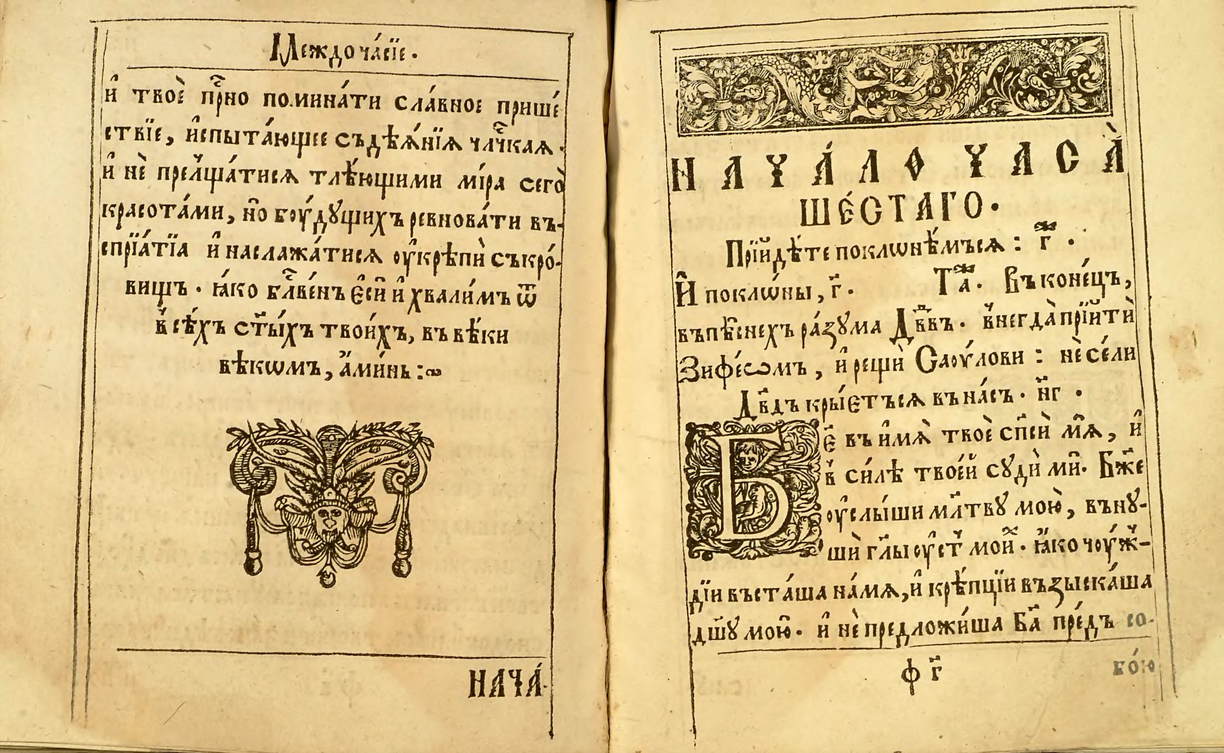 Междоча́сїе.
и҆ твоѐ пр҇но помина́ти сла́вное прише́
ствїе, и҆спыта́ющее съдѣѧ́нїѧ чл҃чкаѧ.
и҆ не прелⷳ҇ща́тисѧ тлѣ́ющими мі́ра сего̀
красота́ми, но̀ боу́дущихъ ревнова́ти въ-
спрїѧ́тїа и҆ наслажа́тисѧ ѹ҆крѣпѝ съкро́-
вищъ. ꙗ҆́ко бл҃ве́нъ є҆сѝ и҆ хва́лимъ ѿ
всѣ́хъ ст҃ы́хъ твои́хъ, въ вѣ́ки
вѣ́кѡмъ, а҆ми́нь:~
НАЧА́
НАЧА́ЛО ЧАСА̀
ШЕ́СТАГО.
Прїйдѣ́те поклѡнѣ́мъсѧ : г҃ⷤ.
И҆ покло́ны, г҃. Та́ⷤ. Въ коне́цъ,
въ пѣ́снехъ ра́зума Дв҃в. внегда̀ прїйтѝ
Зифе́ѡмъ, и҆ рещѝ Саѹ́лови : не сѐ ли
Дв҃дъ кры́єтъсѧ въ на́съ. н҃г.
БЕ въ и҆́мѧ твоѐ сп҃си́ мѧ, и҆
в си́лѣ твоє́й судѝ мѝ. Бж҃е
ѹ҆слы́ши мл҃тву мою̀, внꙋ-
шѝ гл҃ы ѹ҆́ст мои́ⷯ. ꙗ҆́ко чоу́ж-
дїи въста́ша на́мѧ, и҆ крѣ́пцїи възыска́ша
дш҃у мою̀. и҆ не предложи́ша Бг҃а пре́дъ со-
ф҃г
бо́ю